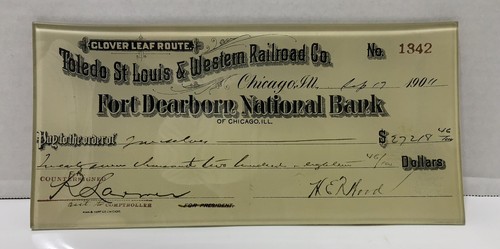 CLOVER LEAF ROUTE.
Toledo St Louis & Western Railroad Co.
No. 1342
Chicago, Ill. 190
Fort Dearborn National Bank
OF CHICAGO, ILL.
Pay to the order of Ourselves $27218 46/100
Twenty seven thousand two hundred eighteen 46/100 Dollars
COUNTERSIGNED
COMPTROLLER
FOR PRESIDENT.